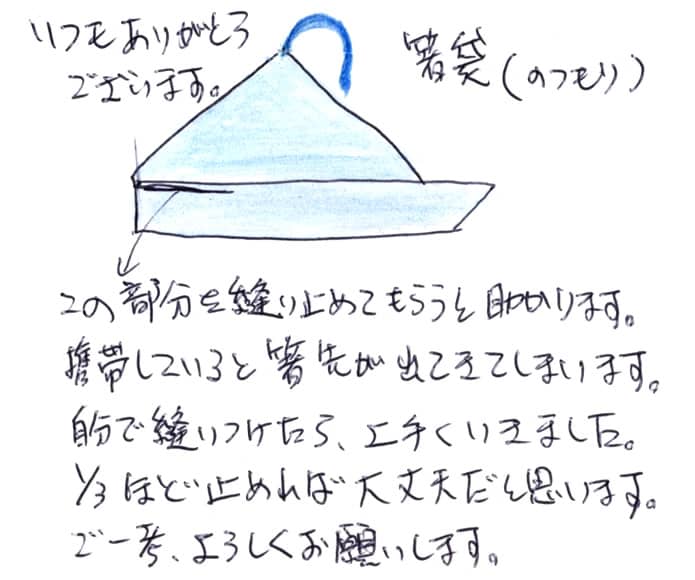 いつもありがとう
ございます。
箸袋(のつもり)
この部分を縫い止めてもらうと助かります。
携帯していると箸先が出てきてしまいます。
自分で縫いつけたら、上手くいきました。
1/3ほど止めれば大丈夫だと思います。
ご一考、よろしくお願いします。